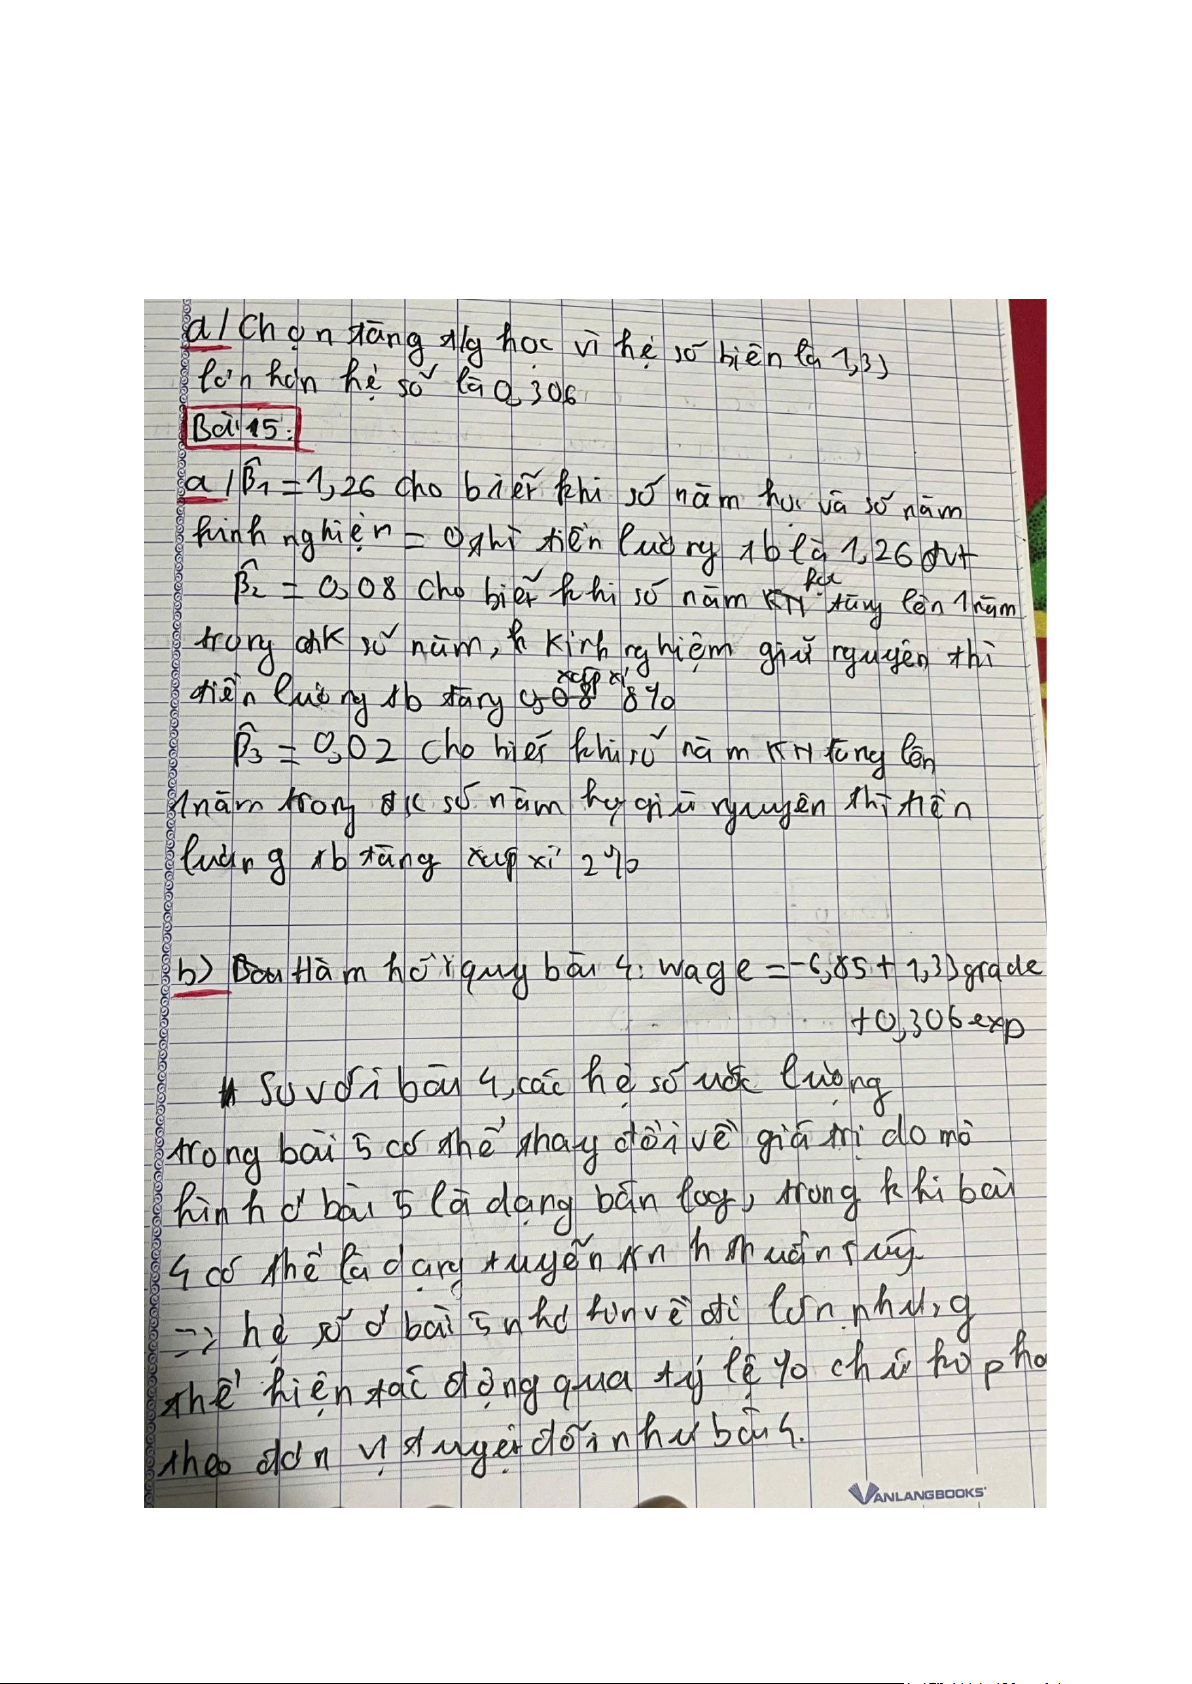 d/ Chọn tăng t/g học vì hệ số biến là 1,33
lớn hơn hệ số là 0,306
Bài 5:
a/ β̂1 = 1,26 cho biết khi số năm học và số năm
kinh nghiện = 0 thì tiền lương tb là 1,26 đvt
β̂2 = 0,08 cho biết khi số năm KN học tăng lên 1 năm
trong đk số năm, k kinh nghiệm giữ nguyên thì
tiền lương tb tăng 0,08 xấp xỉ 8%
β̂3 = 0,02 cho biết khi số năm KN tăng lên
1 năm trong đk số năm học giữ nguyên thì tiền
lương tb tăng xấp xỉ 2%
b) Hàm hồi quy bài 4: wage = -6,85 + 1,33 grade
+ 0,306 exp
So với bài 4, các hệ số ước lượng
trong bài 5 có thể thay đổi về giá trị do mô
hình ở bài 5 là dạng bán log, trong khi bài
4 có thể là dạng tuyến tính thuần túy
=> hệ số ở bài 5 nhỏ hơn về độ lớn nhưng
thể hiện tác động qua tỷ lệ % chứ ko phả
theo đơn vị tuyệt đối như bài 4.
VANLANGBOOKS